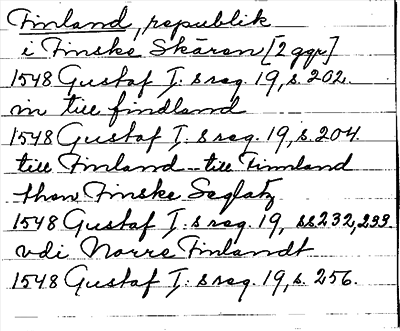 Finland, republik
i Finske Skären [2 ggr]
1548 Gustaf I:s reg. 19, s. 202.
in till findland
1548 Gustaf I:s reg. 19, s. 204.
till Finland - till Finnland
then Finske Seglatz
1548 Gustaf I:s reg. 19, ss 232, 233.
vdi Norre Finlandt
1548 Gustaf I:s reg. 19, s. 256.